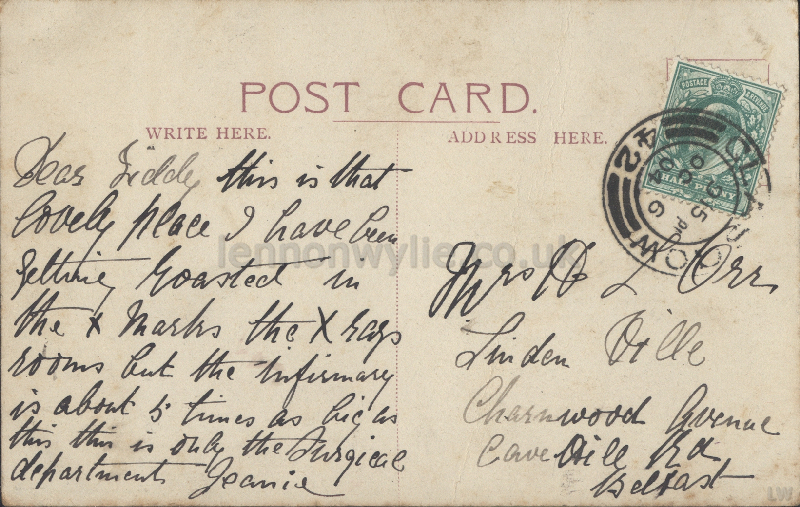 POST CARD.
WRITE HERE.
ADDRESS HERE.
POSTAGE
HALF PENNY
GLASGOW
42
9 15 PM
OC 6
04
Dear Tiddy this is that
lovely place I have been
getting roasted in
the X marks the X rays
rooms but the infirmary
is about 5 times as big as
this this is only the Surgical
department Jeanie
Mrs L Orr
Linden Ville
Charnwood Avenue
Cave Hill Rd
Belfast
lennonwylie.co.uk
LW